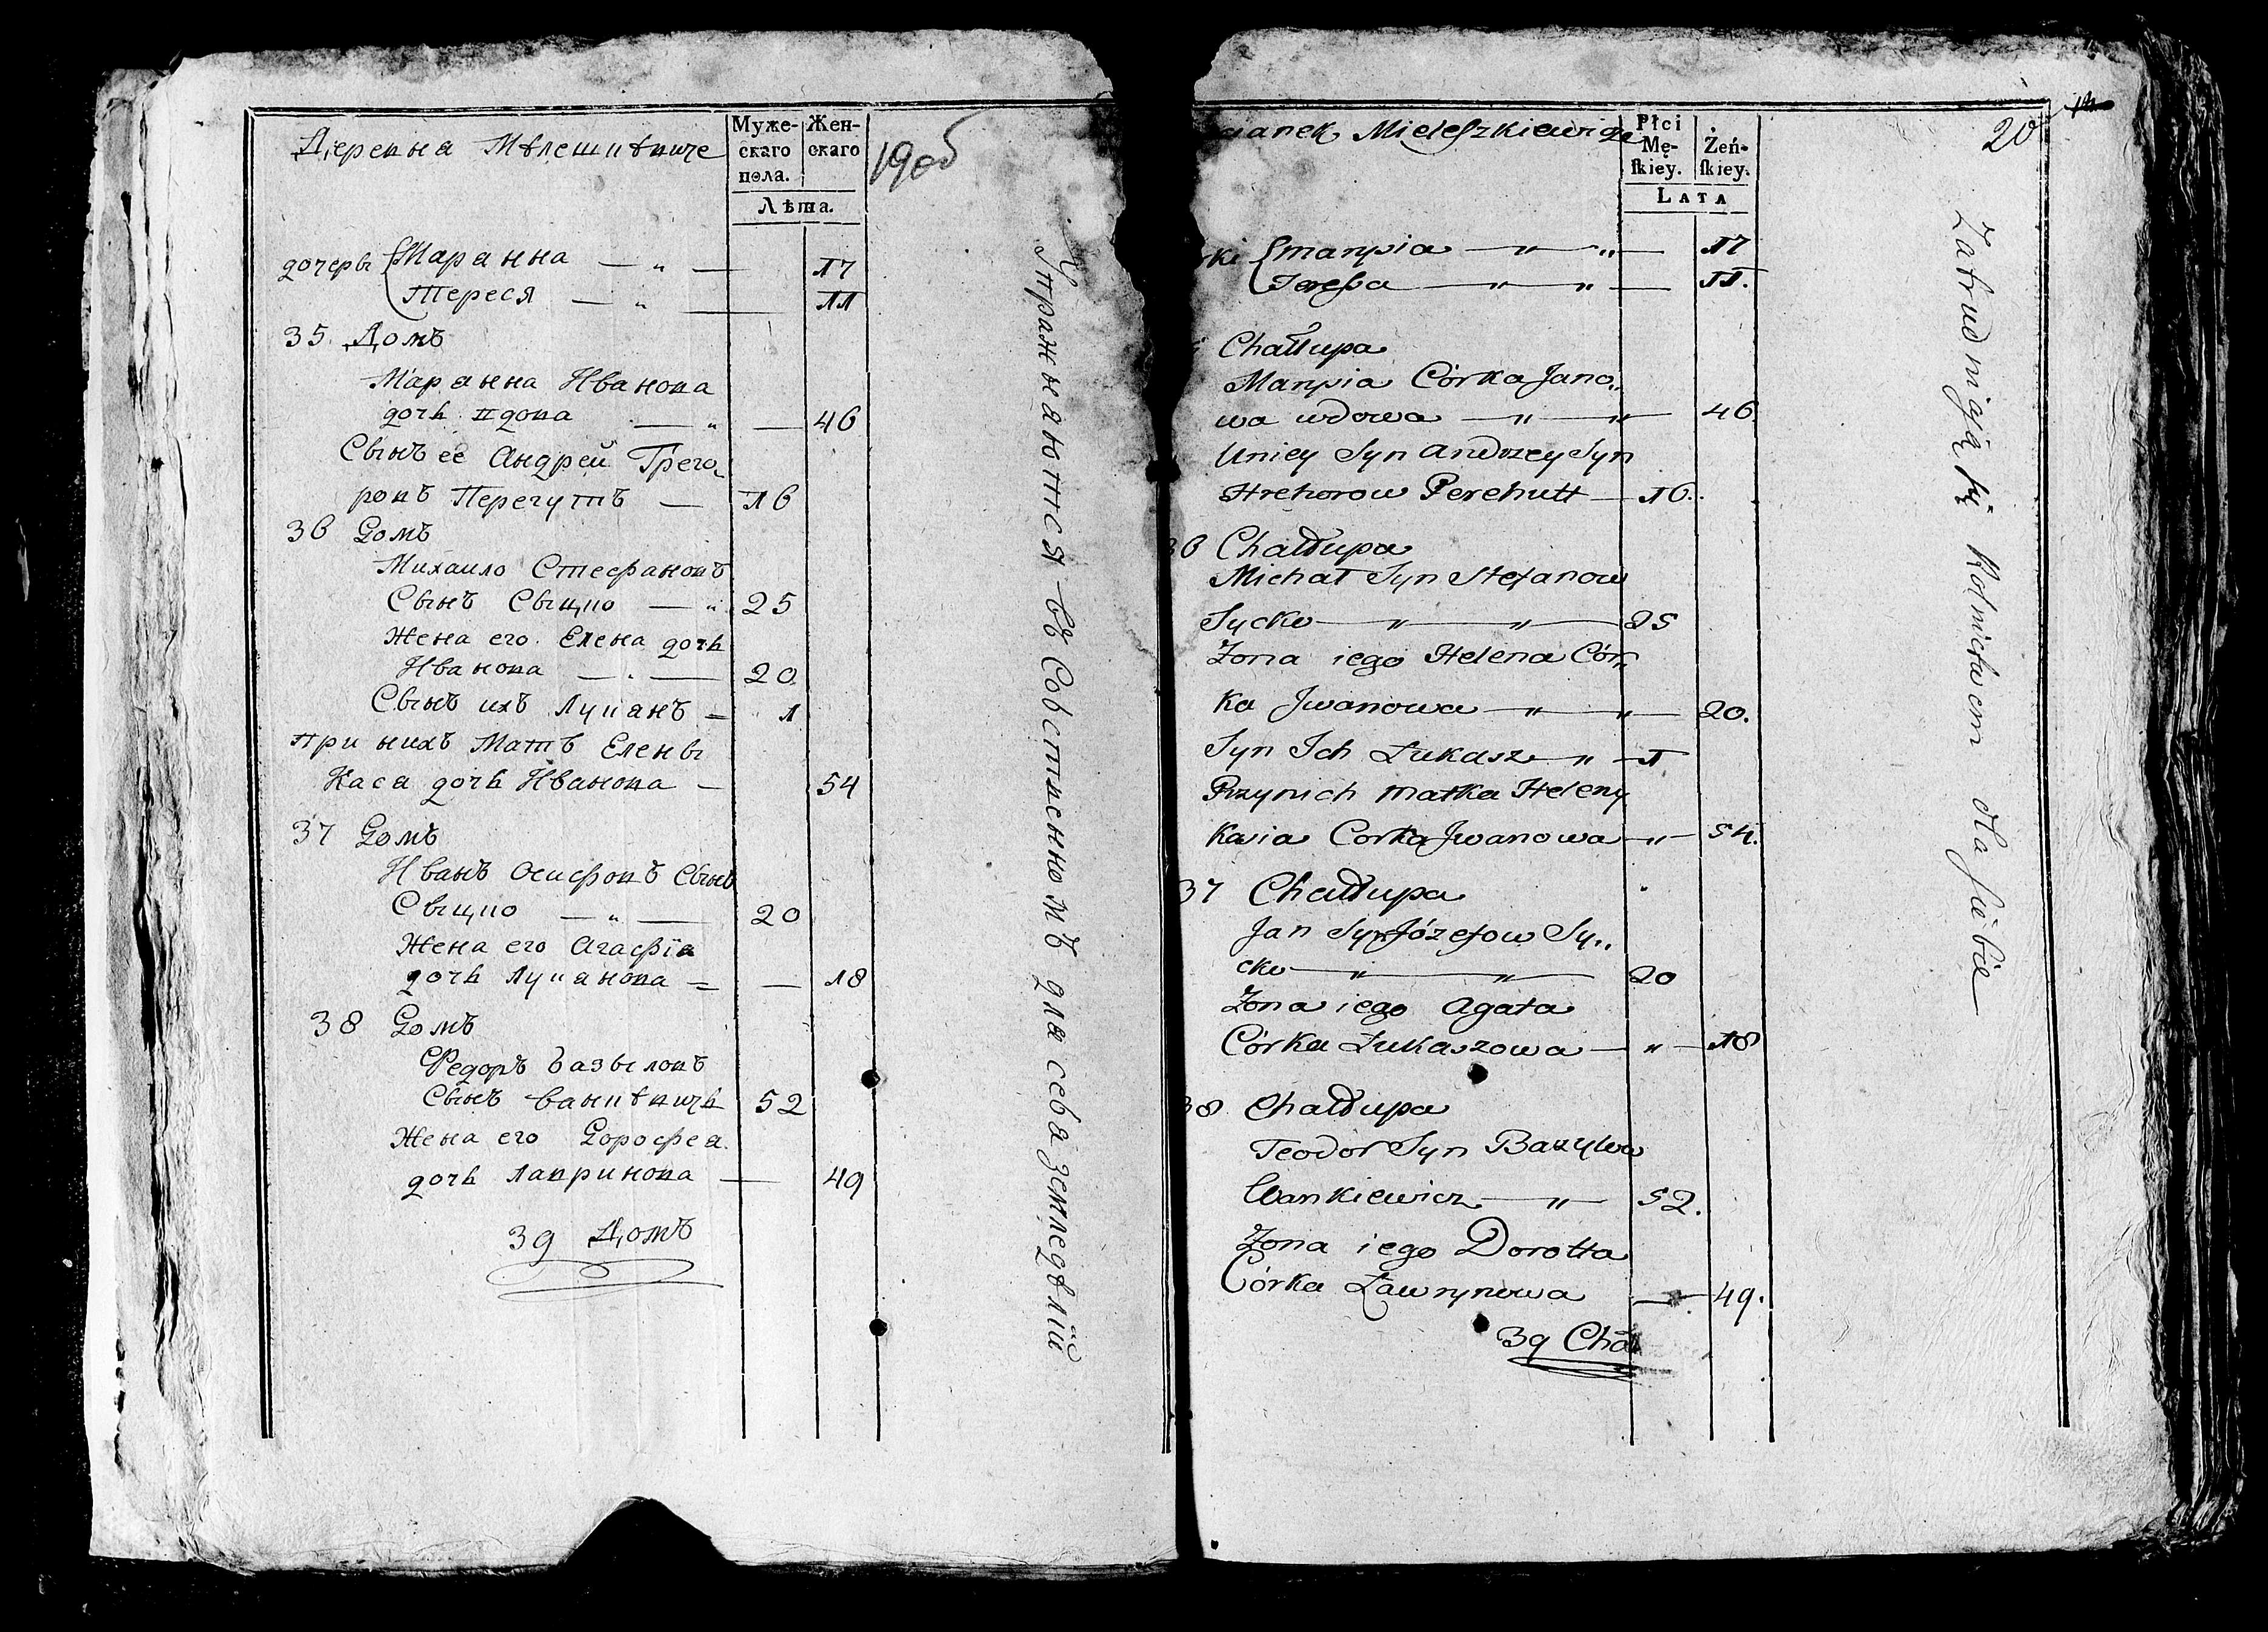 Деревна Мѣлешкѣвиче
Муже-
скаго
пола.
Жен-
скаго
Лѣта.
19об
дочеры Марянна — „ — 17
Тереся — „ — 11
35 Домъ
Марянна Ивановa
дочь вдова — „ — 46
Сынъ её Андрей Грего„
ровъ Перегутъ — 16
36 Домъ
Михаило Стефановъ
Сынъ Сыцко — „ 25
Жена его Елена дочь
Иванова — „ — 20
Сынъ ихъ Лукашъ — 1
при нихъ Мать Елены
Кася дочь Иванова — 54
37 Домъ
Иванъ Осифовъ Сынъ
Сыцко — „ — 20
Жена его Агафїя
дочь Лукашова = — 18
38 Домъ
Федоръ Базыловъ
Сынъ Ванкѣвичь 52
Жена его Дорофея
дочь Лавринова — 49
39 Домъ
Упражняются въ Собственномъ для себя земледѣлїи
Mieleszkiewicze
Płci
Mę-
ſkiey.
Żeń-
ſkiey.
LATA
20
rki Marysia — „ — „ — 17
Teressa — „ — „ — 11.
Chałłupa
Marysia Córka Jano„
wa wdowa — „ — „ — 46.
Uniey Syn Andrzey Syn
Hrehorow Perehutt — 16.
36 Chałłupa
Michał Syn Stefanow
Sycko — „ — „ — 25
Żona iego Helena Cór„
ka Jwanowa — „ — „ — 20.
Syn Ich Łukasz — „ — 1
Przynich Matka Heleny
Kasia Corka Jwanowa — „ — 54.
37 Chałłupa
Jan Syn Józefow Sy„
cko — „ — „ — 20
Żona iego Agata
Córka Łukaszowa — „ — 18
38 Chałłupa
Teodor Syn Bazylow
Wankiewicz — „ — 52.
Żona iego Dorotta
Córka Ławrynowa — 49.
39 Chał
Zatrudniaią się Rolnictwem dla siebie